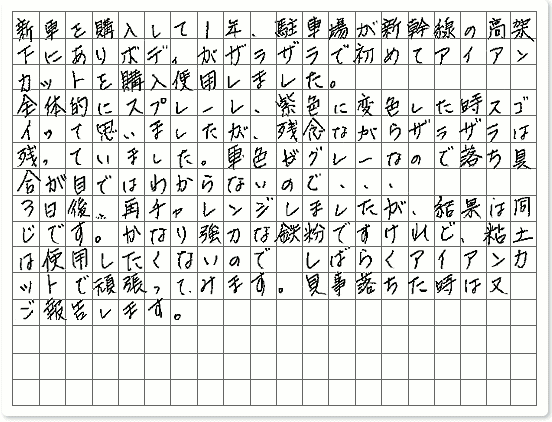 新車を購入して1年、駐車場が新幹線の高架
下にありボディがザラザラで初めてアイアン
カットを購入使用しました。
全体的にスプレーし、紫色に変色した時スゴ
イって思いましたが、残念ながらザラザラは
残っていました。車色がグレーなので落ち具
合が目ではわからないので、、、
3日後、再チャレンジしましたが、結果は同
じです。かなり強力な鉄粉ですけれど、粘土
は使用したくないので しばらくアイアンカ
ットで頑張ってみます。見事落ちた時は又
ご報告します。